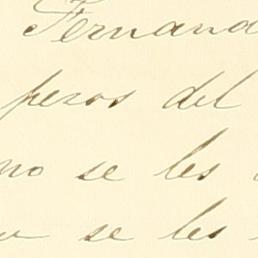 Fernand
pesos del
no se les
se les